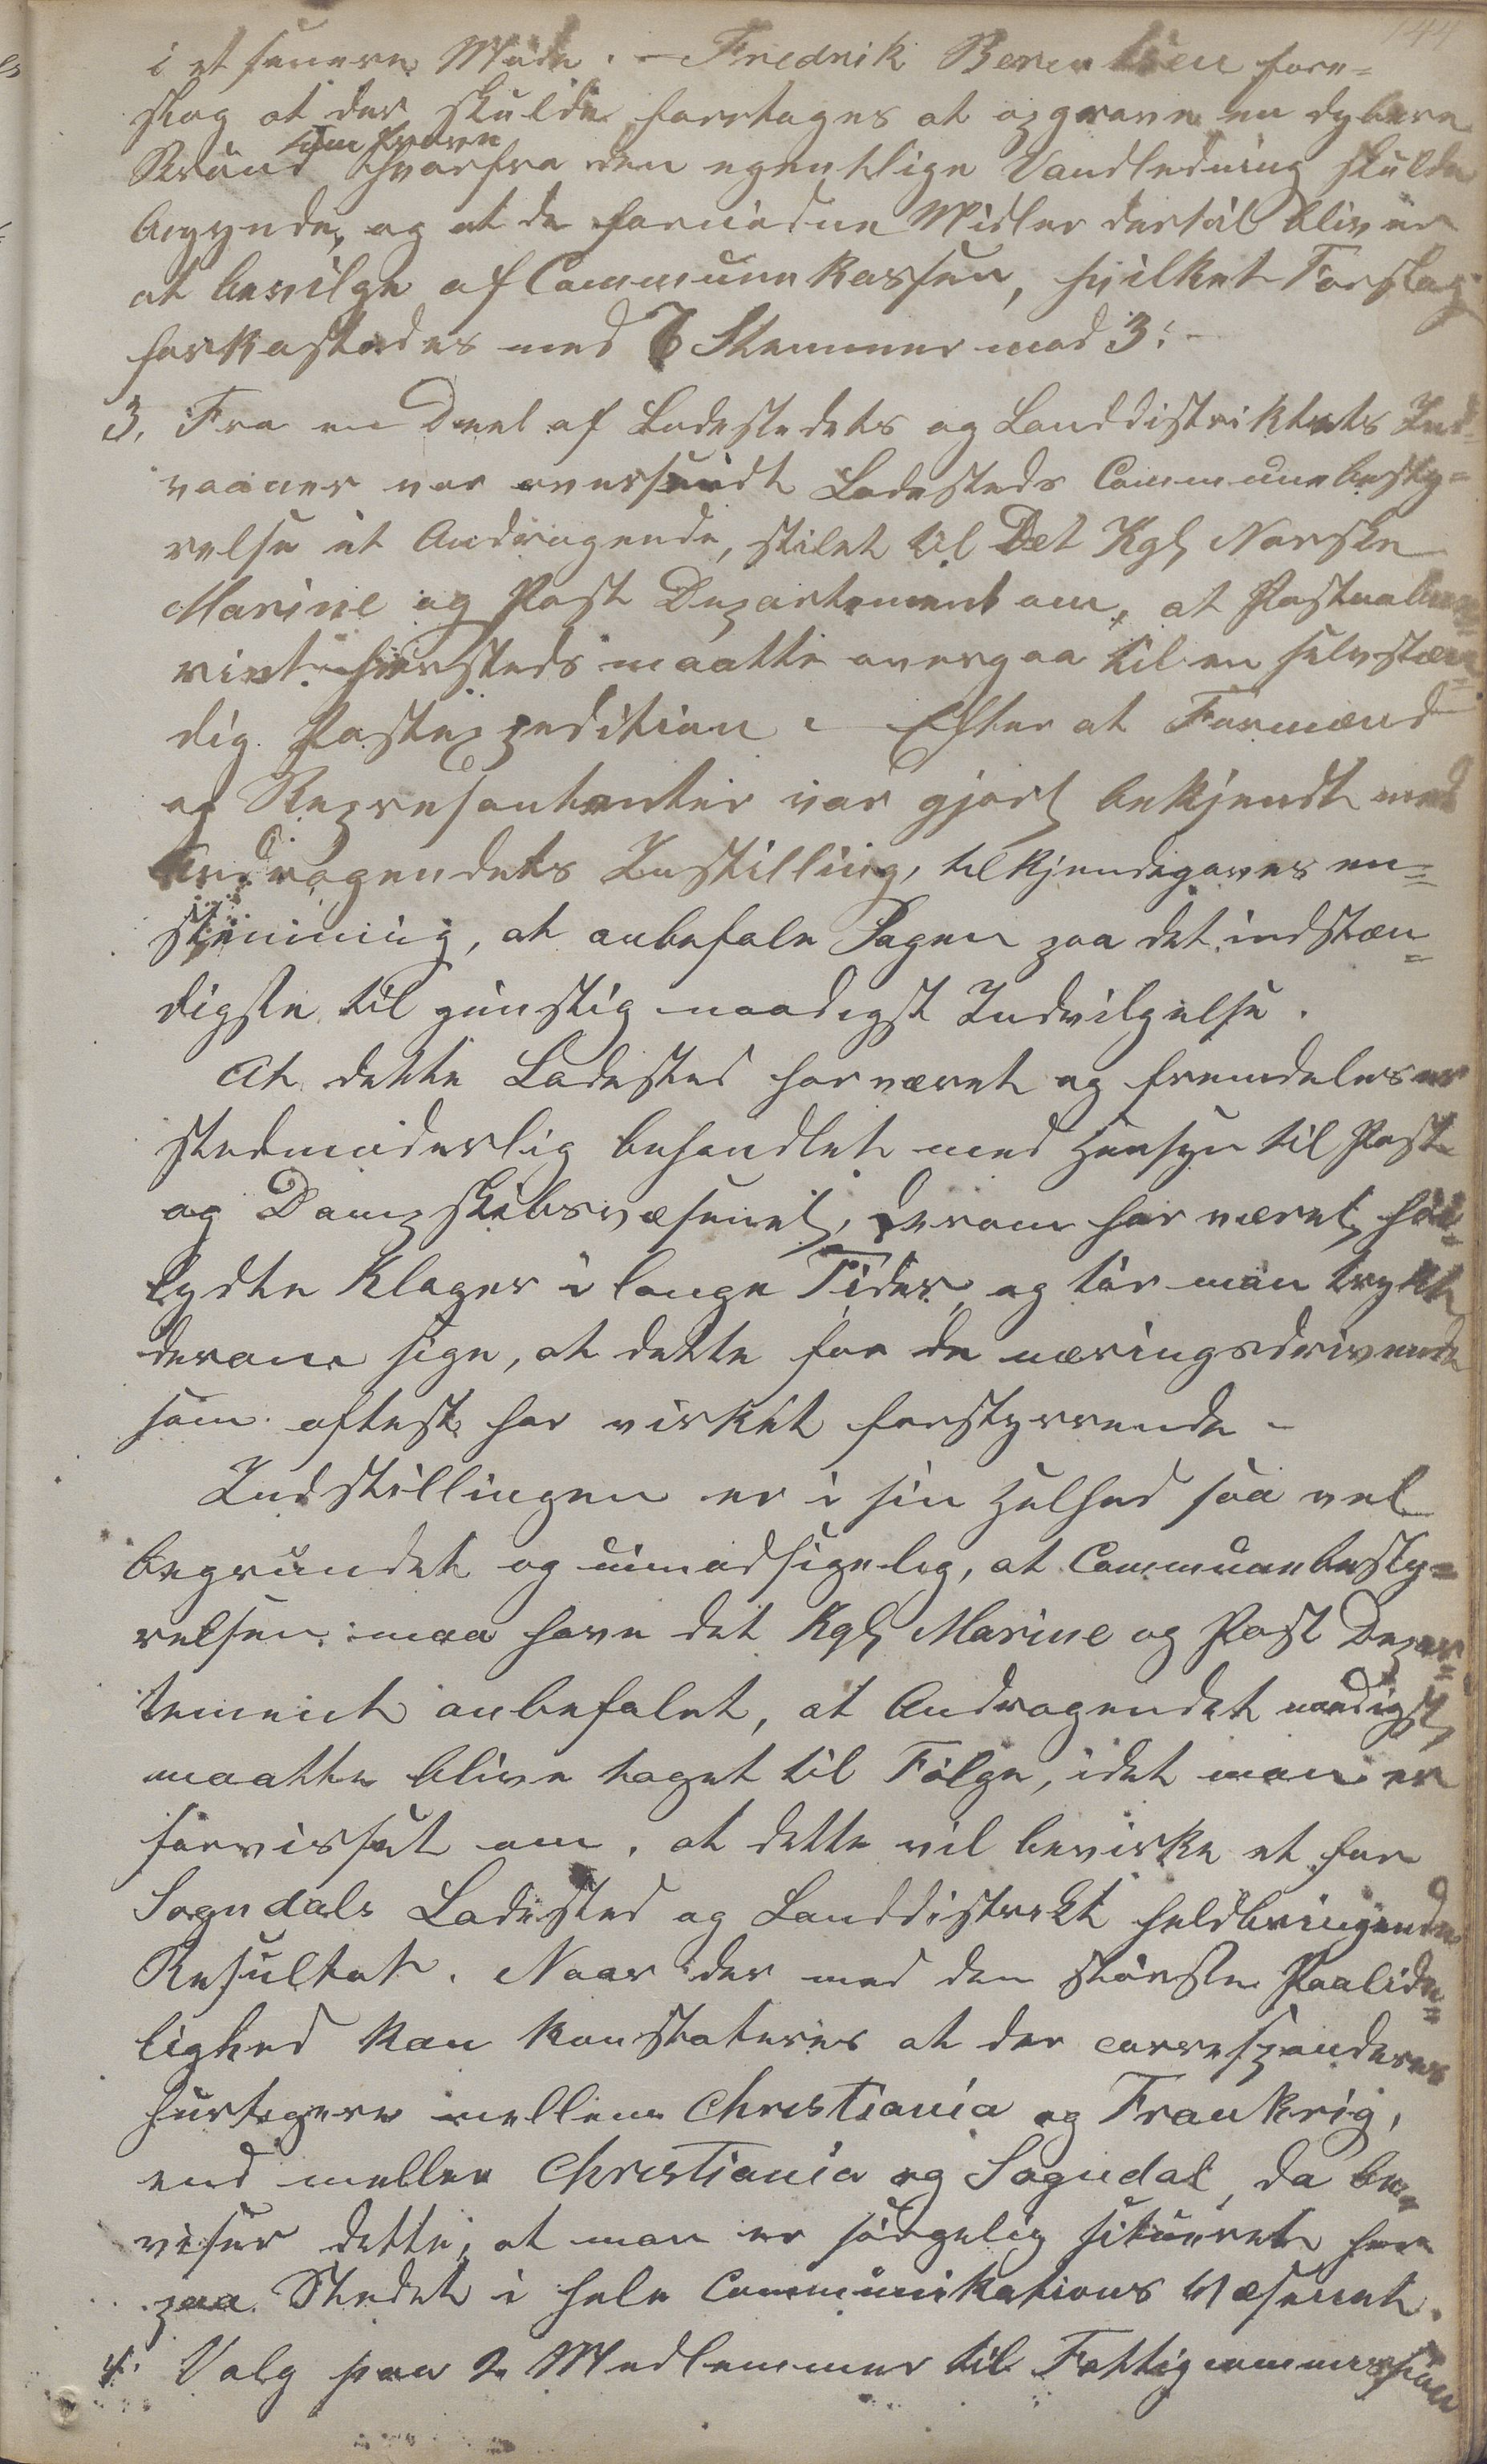 144
i et senere Møde. – Fredrik Berentsen fore-
slog at der skulde foretages at opgrave en dybere
Brønd hvorfra den egentlige Vandledning skulde
begynde, og at de fornødne Midler dertil bliver
at bevilge af Communekassen, hvilket Forslag
forkastedes med 7 Stemmer mod 3. –
3, Fra en Deel af Ladestedets og Landdistriktets Ind-
vaaner var oversendt Ladesteds Communebesty-
relse et Andragende, stilet til Det Kgl. Norske
Marine og Post Departement om, at Postaabne-
riet hersteds maatte overgaa til en selvstæn-
dig Postexpedition. – Efter at Formænd
og Repræsentanter var gjort bekjendt med
Andragendets Indstilling, tilkjendegaves en-
stemmig, at anbefale Sagen paa det indstæn-
digste til gunstig naadigst Indvilgelse.
At dette Ladested har været og fremdeles er
stedmoderlig behandlet med Hensyn til Post
og Dampskibsvæsenet, derom har været høi-
lydte Klager i lange Tider, og tør man trygt
derom sige, at dette for de næringsdrivende
som oftest har virket forstyrrende –
Indstillingen er i sin Helhed saa vel
begrundet og uimodsigelig, at Communebesty-
relsen maa have det Kgl. Marine og Post Depar-
tement anbefalet, at Andragendet naadigst
maatte blive taget til Følge, idet man er
forvisset om, at dette vil bevirke et for
Sogndals Ladested og Landdistrikt heldbringende
Resultat. Naar der med den største Paalide-
lighed kan konstateres at der correspanderes
hurtigere mellem Christiania og Frankrig,
end mellem Christiania og Sogndal, da be-
viser dette, at man er sørgelig situeret her
paa Stedet i hele Communikations Væsenet.
4. Valg paa 2 Medlemmer til Fattigcommission